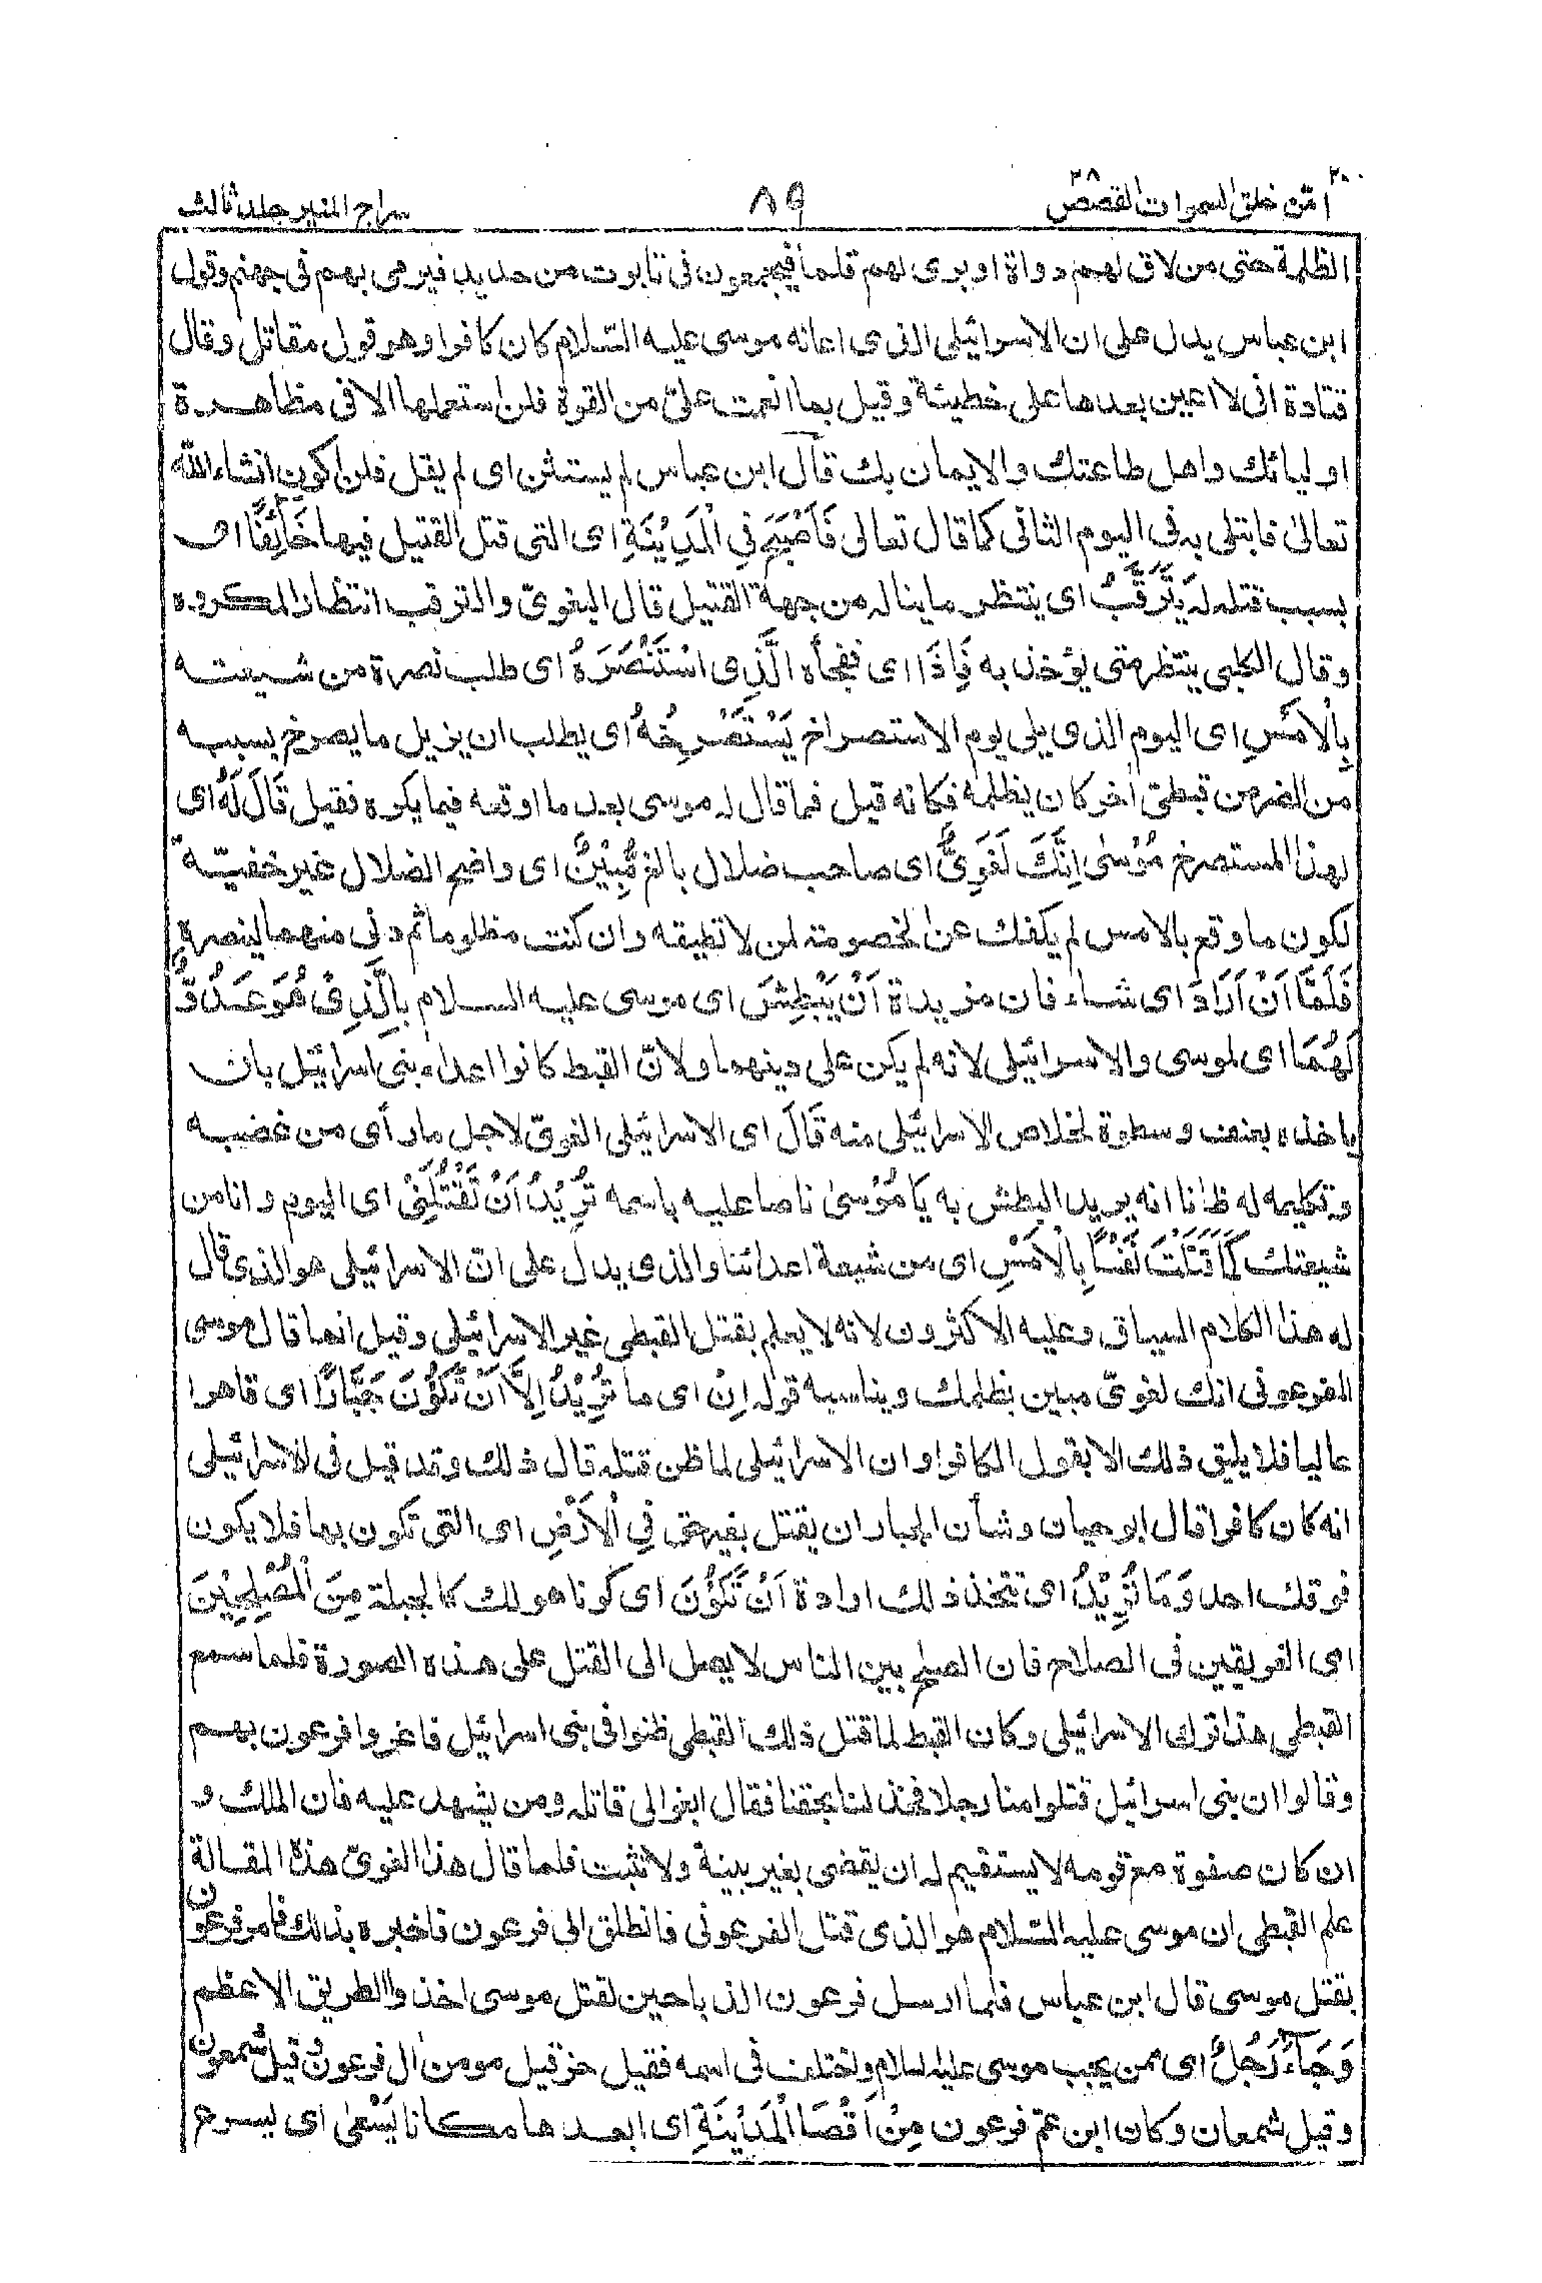 امّن خلق السموات ٢٠ القصص ٢٨
٨٩
سراج المنير جلد ثالث
الظلمة حتى من لاق لهم دواة او برى لهم قلما فيجمعون فى تابوت من حديد فيرمى بهم فى جهنم وقول
ابن عباس يدل على ان الاسرائيلى الذى اعانه موسى عليه السّلام كان كافرا وهو قول مقاتل وقال
قتادة انى لا اعين بعدها على خطيئة وقيل بما انعمت علىّ من القوة فلن استعملها الا فى مظاهرة
اوليائك واهل طاعتك والايمان بك قال ابن عباس لم يستثن اى لم يقل فلن اكون انشاءالله
تعالىٰ فابتلى به فى اليوم الثانى كما قال تعالى فَاَصْبَحَ فِي الْمَدِيْنَةِ اى التى قتل القتيل فيها خَآئِفًا اى
بسبب قتله له يَّتَرَقَّبُ اى ينتظر ما يناله من جهة القتيل قال البغوىّ والترقب انتظار المكروه
وقال الكلبى ينتظر متى يؤخذ به فَاِذَا اى ففجأه الَّذِى اسْتَنْصَرَهٗ اى طلب نصرة من شيعته
بِالْاَمْسِ اى اليوم الذى يلى يوم الاستصراخ يَسْتَصْرِخُهٗ اى يطلب ان يزيل ما يصرخ بسببه
من الضر من قبطىّ اٰخر كان يظلمه فكانه قيل فما قال له موسى بعد ما اوقعه فيما يكره فقيل قَالَ لَهٗ اى
لهذا المستصرخ مُوْسٰى اِنَّكَ لَغَوِىٌّ اى صاحب ضلال بالغ مُّبِيْنٌ اى واضح الضلال غير خفيّه
لكون ما وقع بالامس لم يكفك عن الخصومة لمن لا تطيقه وان كنت مظلوما ثم دنى منهما لينصره
فَلَمَّآ اَنْ اَرَادَ اى شاء فان مزيدة اَنْ يَّبْطِشَ اى موسى عليه السلام بِالَّذِىْ هُوَ عَدُوٌّ
لَّهُمَا اى لموسى والاسرائيلى لانه لم يكن على دينهما ولانّ القبط كانوا اعداء بنى اسرائيل بان
ياخذه بعنف وسطوة لخلاص الاسرائيلى منه قَالَ اى الاسرائيلى الغوىّ لاجل ما رأى من غضبه
وتكليمه له ظانا انه يريد البطش به يَا مُوْسٰى ناصا عليه باسمه تُرِيْدُ اَنْ تَقْتُلَنِىْ اى اليوم وانا من
شيعتك كَمَا قَتَلْتَ نَفْسًا بِالْاَمْسِ اى من شيعة اعدائنا والذى يدل على انّ الاسرائيلى هو الذى قال
له هذا الكلام السياق وعليه الاكثرون لانه لا يعلم بقتل القبطى غير الاسرائيلى وقيل انما قال موسى
للفرعونى انك لغوىّ مبين بظلمك ويناسبه قوله اِنْ اى ما تُرِيْدُ اِلَّآ اَنْ تَكُوْنَ جَبَّارًا اى قاهرا
عاليا فلا يليق ذلك الا بقول الكافر او ان الاسرائيلى لما ظن قتله قال ذلك وقد قيل فى الاسرائيلى
انه كان كافرا قال ابو حيان وشأن الجبار ان يقتل بغير حق فِي الْاَرْضِ اى التى تكون بها فلا يكون
فوقك احد وَمَا تُرِيْدُ اى تتخذ ذلك ارادة اَنْ تَكُوْنَ اى كونا هو لك كالجبلة مِنَ الْمُصْلِحِيْنَ
اى الغريقين فى الصلاح فان الصلح بين الناس لا يصل الى القتل على هذه الصورة فلما سمع
القبطى هذا ترك الاسرائيلى وكان القبط لما قتل ذلك القبطى ظنوا فى بنى اسرائيل فاغروا فرعون بهم
وقالوا ان بنى اسرائيل قتلوا منا رجلا فخذ لنا بحقنا فقال ابغوا لى قاتله ومن يشهد عليه فان الملك و
ان كان صفوة مع قومه لا يستقيم له ان يقضى بغير بينة ولا تثبت فلما قال هذا الغوىّ هذه المقالة
علم القبطى ان موسى عليه السّلام هو الذى قتل الفرعونى فانطلق الى فرعون فاخبره بذلك فامر فرعون
بقتل موسى قال ابن عباس فلما ارسل فرعون الذباحين لقتل موسى اخذوا الطريق الاعظم
وَجَآءَ رَجُلٌ اى ممن يحب موسى عليه السلام واختلف فى اسمه فقيل حزقيل مومن اٰل فرعون وقيل شمعون
وقيل شمعان وكان ابن عمّ فرعون مِنْ اَقْصَا الْمَدِيْنَةِ اى ابعدها مكانا يَسْعٰى اى يسرع